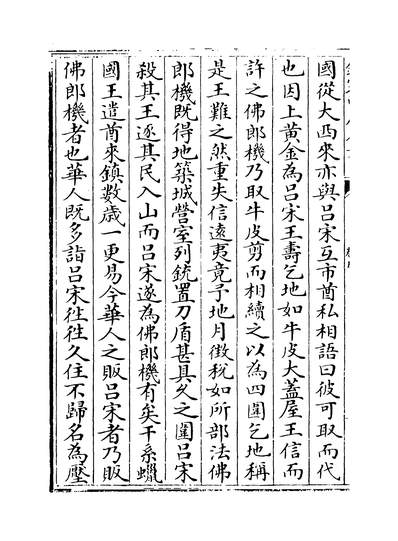 國從大西來亦與呂宋互市酋私相語曰彼可取而代
也因上黄金為呂宋王壽乞地如牛皮大蓋屋王信而
許之佛郎機乃取牛皮剪而相續之以為四圍乞地稱
是王難之然重失信遠夷竟予地月徴稅如所部法佛
郎機既得地築城營室列銃置刀盾甚具乆之圍呂宋
殺其王逐其民入山而呂宋遂為佛郎機有矣干系蠟
國王遣酋來鎮數歲一更易今華人之販呂宋者乃販
佛郎機者也華人既多詣呂宋徃徃久住不歸名為壓